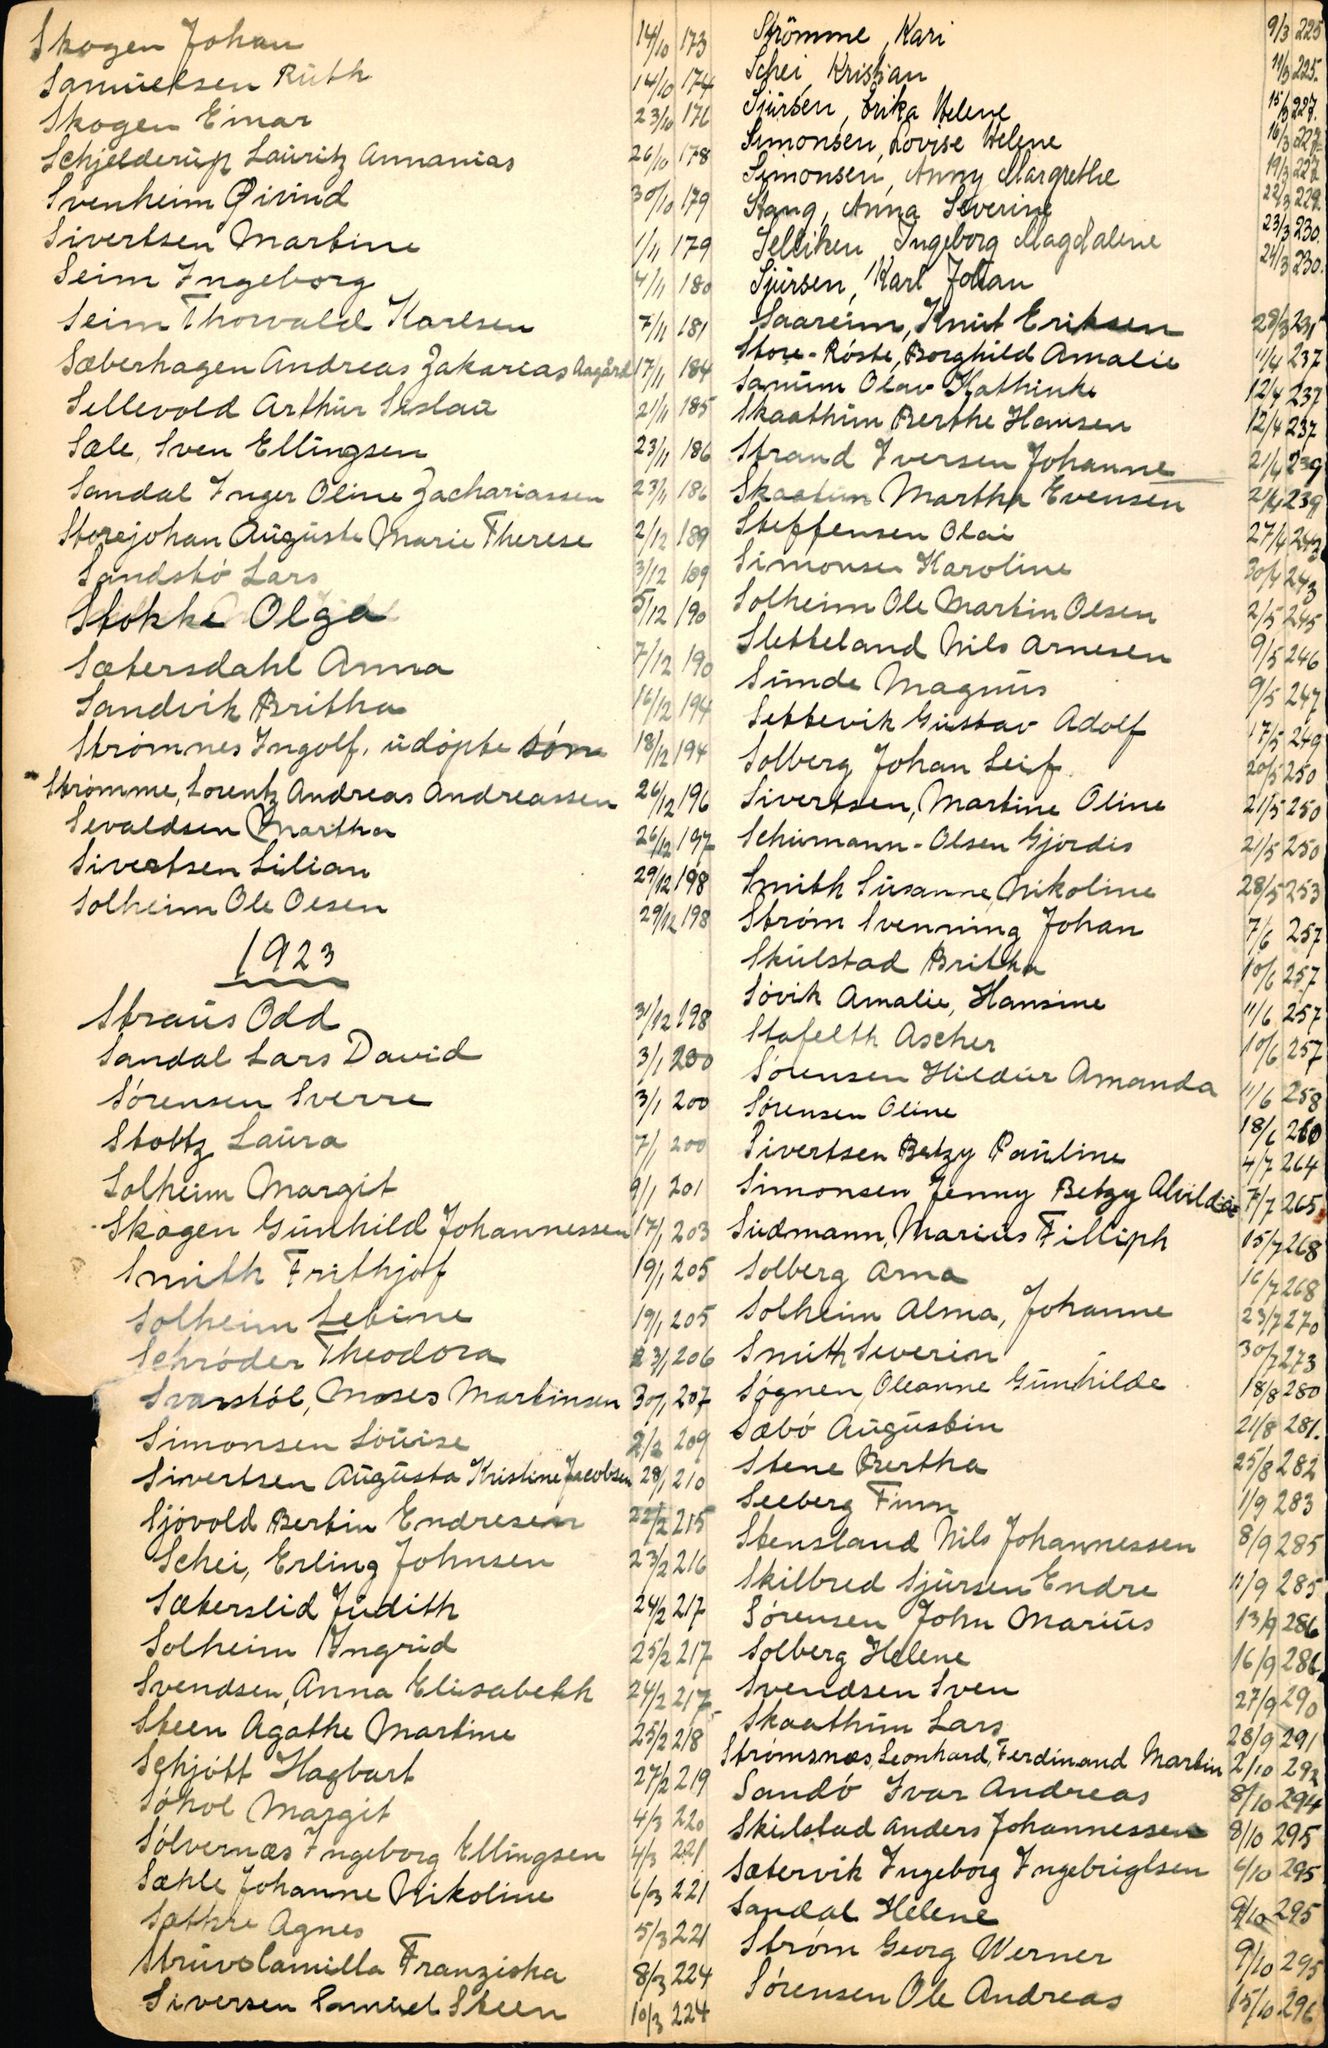 Skogen Johan 14/10 173
Samuelsen Ruth 14/10 174
Skogen Einar 23/10 176
Schjelderup Lauritz Annanias 26/10 178
Svenheim Øivind 30/10 179
Sivertsen Martine 1/11 179
Seim Ingeborg 4/11 180
Seim Thorvald Karlsen 7/11 181
Sæberhagen Andreas Zakarias Aagård 17/11 184
Sellevold Arthur 21/11 185
Sæle, Sven Ellingsen 23/11 186
Sandal Inger Oline Zachariassen 23/11 186
Storejohan Auguste Marie Therese 2/12 189
Sandsbö Lars 3/12 189
Stokke Olga 5/12 190
Sætersdahl Anna 7/12 190
Sandvik Britha 16/12 194
Strømnes Ingolf, udöpte sön 18/12 194
Strömme, Lorentz Andreas Andreassen 26/12 196
Sevaldsen Martha 26/12 197
Sivertsen Lilian 29/12 198
Solheim Ole Olsen 29/12 198
1923
Straus Odd 31/12 198
Sandal Lars David 3/1 200
Sörensen Sverre 3/1 200
Stoltz Laura 7/1 200
Solheim Margit 9/1 201
Skogen Gunhild Johannessen 17/1 203
Smith Frithjof 19/1 205
Solheim Sebine 19/1 205
Schröder Theodora 23/1 206
Svarstöl, Moses Martinsen 30/1 207
Simonsen Louise 2/2 209
Sivertsen Augusta Kristine Jacobsen 28/1 210
Sjövold Bertin Endresen 22/2 215
Schei, Erling Johnsen 23/2 216
Sæterslid Judith 24/2 217
Solheim Ingrid 25/2 217
Svendsen, Anna Elisabeth 24/2 217
Steen Agathe Martine 25/2 218
Schjött Hagbart 27/2 219
Söhol Margit 4/3 220
Sölvernæs Ingeborg Ellingsen 4/3 221
Sæhle Johanne Nikoline 6/3 221
Sæthre Agnes 5/3 221
Struve Camilla Franziska 8/3 224
Siversen Samuel Steen 10/3 224
Strömme, Kari 9/3 225
Schei, Kristian 11/3 225.
Sjursen, Erika Helene 15/3 227.
Simonsen, Lovise Helene 16/3 227
Simonsen, Anny Margrethe 19/3 227
Stang, Anna Severine 22/3 229.
Selliken, Ingeborg Magdalene 23/3 230.
Sjursen, Karl Johan 24/3 230.
Saareim, Knut Eriksen 28/3 231
Store-Röste, Borghild Amalie 11/4 237
Sanum Olav Kathinka 12/4 237
Skaathun Berthe Hansen 12/4 237
Strand Iversen Johanne 21/4 239
Skaatun Martha Evensen 21/4 239
Steffensen Olai 27/4 243
Simonsen Karoline 30/4 243
Solheim Ole Martin Olsen 2/5 245
Sletteland Nils Arnesen 9/5 246
Sunde Magnus 9/5 247
Settevik Gustav Adolf 17/5 249
Solberg Johan Leif 20/5 250
Sivertsen, Martine Oline 21/5 250
Schumann-Olsen Gjördis 21/5 250
Smith Susanne, Nikoline 28/5 253
Ström Svenning Johan 7/6 257
Skulstad Britha 10/6 257
Sövik Amalie, Hansine 11/6 257
Stofelth Ascher 10/6 257
Sörensen Hildur Amanda 11/6 258
Sörensen Oline 18/6 260
Sivertsen Betzy Pauline 4/7 264
Simonsen Jenny Betzy Alvilda 7/7 265
Sudmann, Marius Filliph 15/7 268
Solberg Arna 16/7 268
Solheim Alma, Johanne 23/7 270
Smith Severin 30/7 273
Søgnen, Oleanne Gunhilde 18/8 280
Sæbö Augustin 21/8 281.
Stene Bertha 25/8 282
Seeberg Finn 1/9 283
Stensland Nils Johannessen 8/9 285
Skilbred Sjursen Endre 11/9 285
Sörensen John Marius 13/9 286
Solberg Helene 16/9 286
Svendsen Sven 27/9 290
Skaathun Lars 28/9 291
Strömsnæs, Leonhard, Ferdinand Martin 2/10 292
Sandö Ivar Andreas 8/10 294
Skulstad Anders Johannessen 8/10 295
Sætervik Ingeborg Ingebrigtsen 6/10 295
Sandal Helene 9/10 295
Ström Georg Werner 9/10 295
Sörensen Ole Andreas 15/10 296